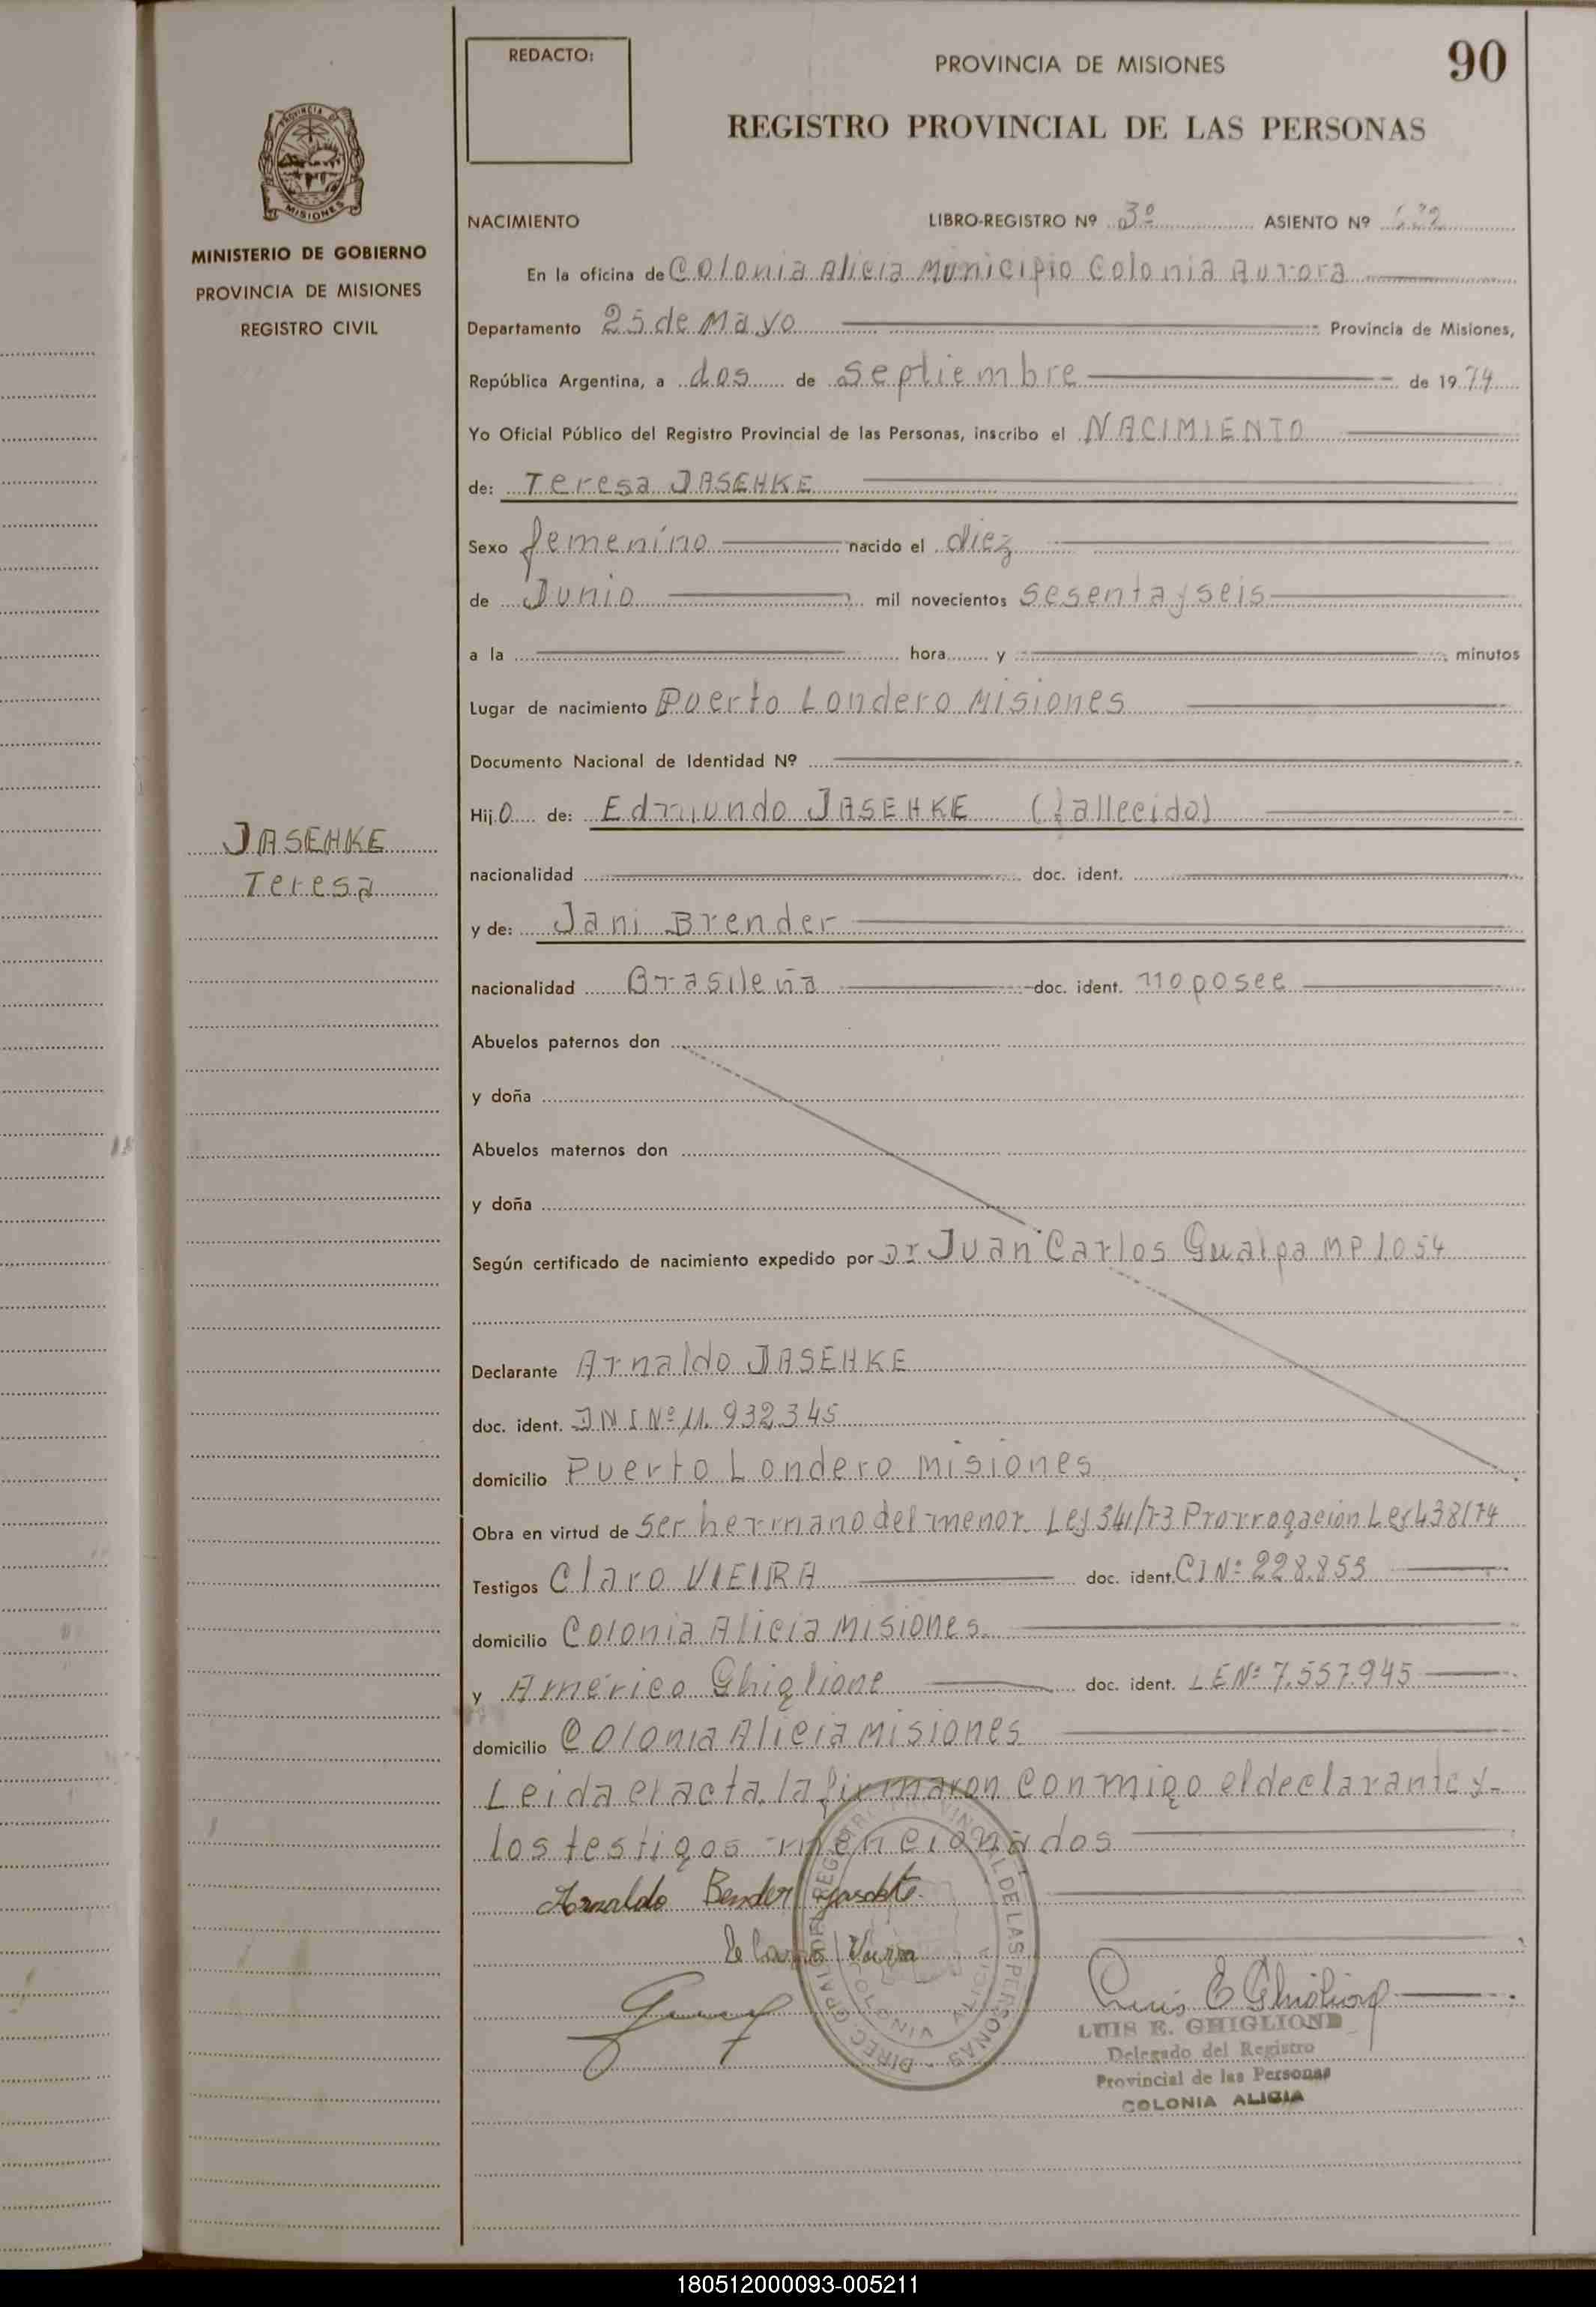 REDACTO:
PROVINCIA DE MISIONES
90
REGISTRO PROVINCIAL DE LAS PERSONAS
PROVINCIA DE
MISIONES
MINISTERIO DE GOBIERNO
PROVINCIA DE MISIONES
REGISTRO CIVIL
JASEHKE
Teresa
NACIMIENTO LIBRO-REGISTRO Nº 3º ASIENTO Nº
En la oficina de Colonia Alicia Municipio Colonia Aurora
Departamento 25 de Mayo Provincia de Misiones,
República Argentina, a dos de septiembre de 1974
Yo Oficial Público del Registro Provincial de las Personas, inscribo el NACIMIENTO
de: Teresa JASEHKE
Sexo femenino nacido el diez
de Junio mil novecientos sesenta y seis
a la hora y minutos
Lugar de nacimiento Puerto Londero Misiones
Documento Nacional de Identidad Nº
Hijo de: Edmundo JASEHKE (fallecido)
nacionalidad doc. ident.
y de: Jani Brender
nacionalidad Brasileña doc. ident. no posee
Abuelos paternos don
y doña
Abuelos maternos don
y doña
Según certificado de nacimiento expedido por Dr Juan Carlos Gualpa MP 1054
Declarante Arnaldo JASEHKE
doc. ident. DNI Nº 11.932345
domicilio Puerto Londero Misiones
Obra en virtud de ser hermano del menor. Ley 341/73 Prorrogación Ley 438/74
Testigos Claro VIEIRA doc. ident. CI Nº 228.853
domicilio Colonia Alicia Misiones
y Américo Ghiglione doc. ident. LE Nº 7.557.945
domicilio Colonia Alicia Misiones
Leida el acta, la firmaron conmigo el declarante y
los testigos mencionados
Arnaldo Bender
DIREC. GRAL. DEL REGISTRO PROVINCIAL DE LAS PERSONAS
COLONIA ALICIA
Luis E Ghiglione
LUIS E. GHIGLIONE
Delegado del Registro
Provincial de las Personas
COLONIA ALICIA
180512000093-005211